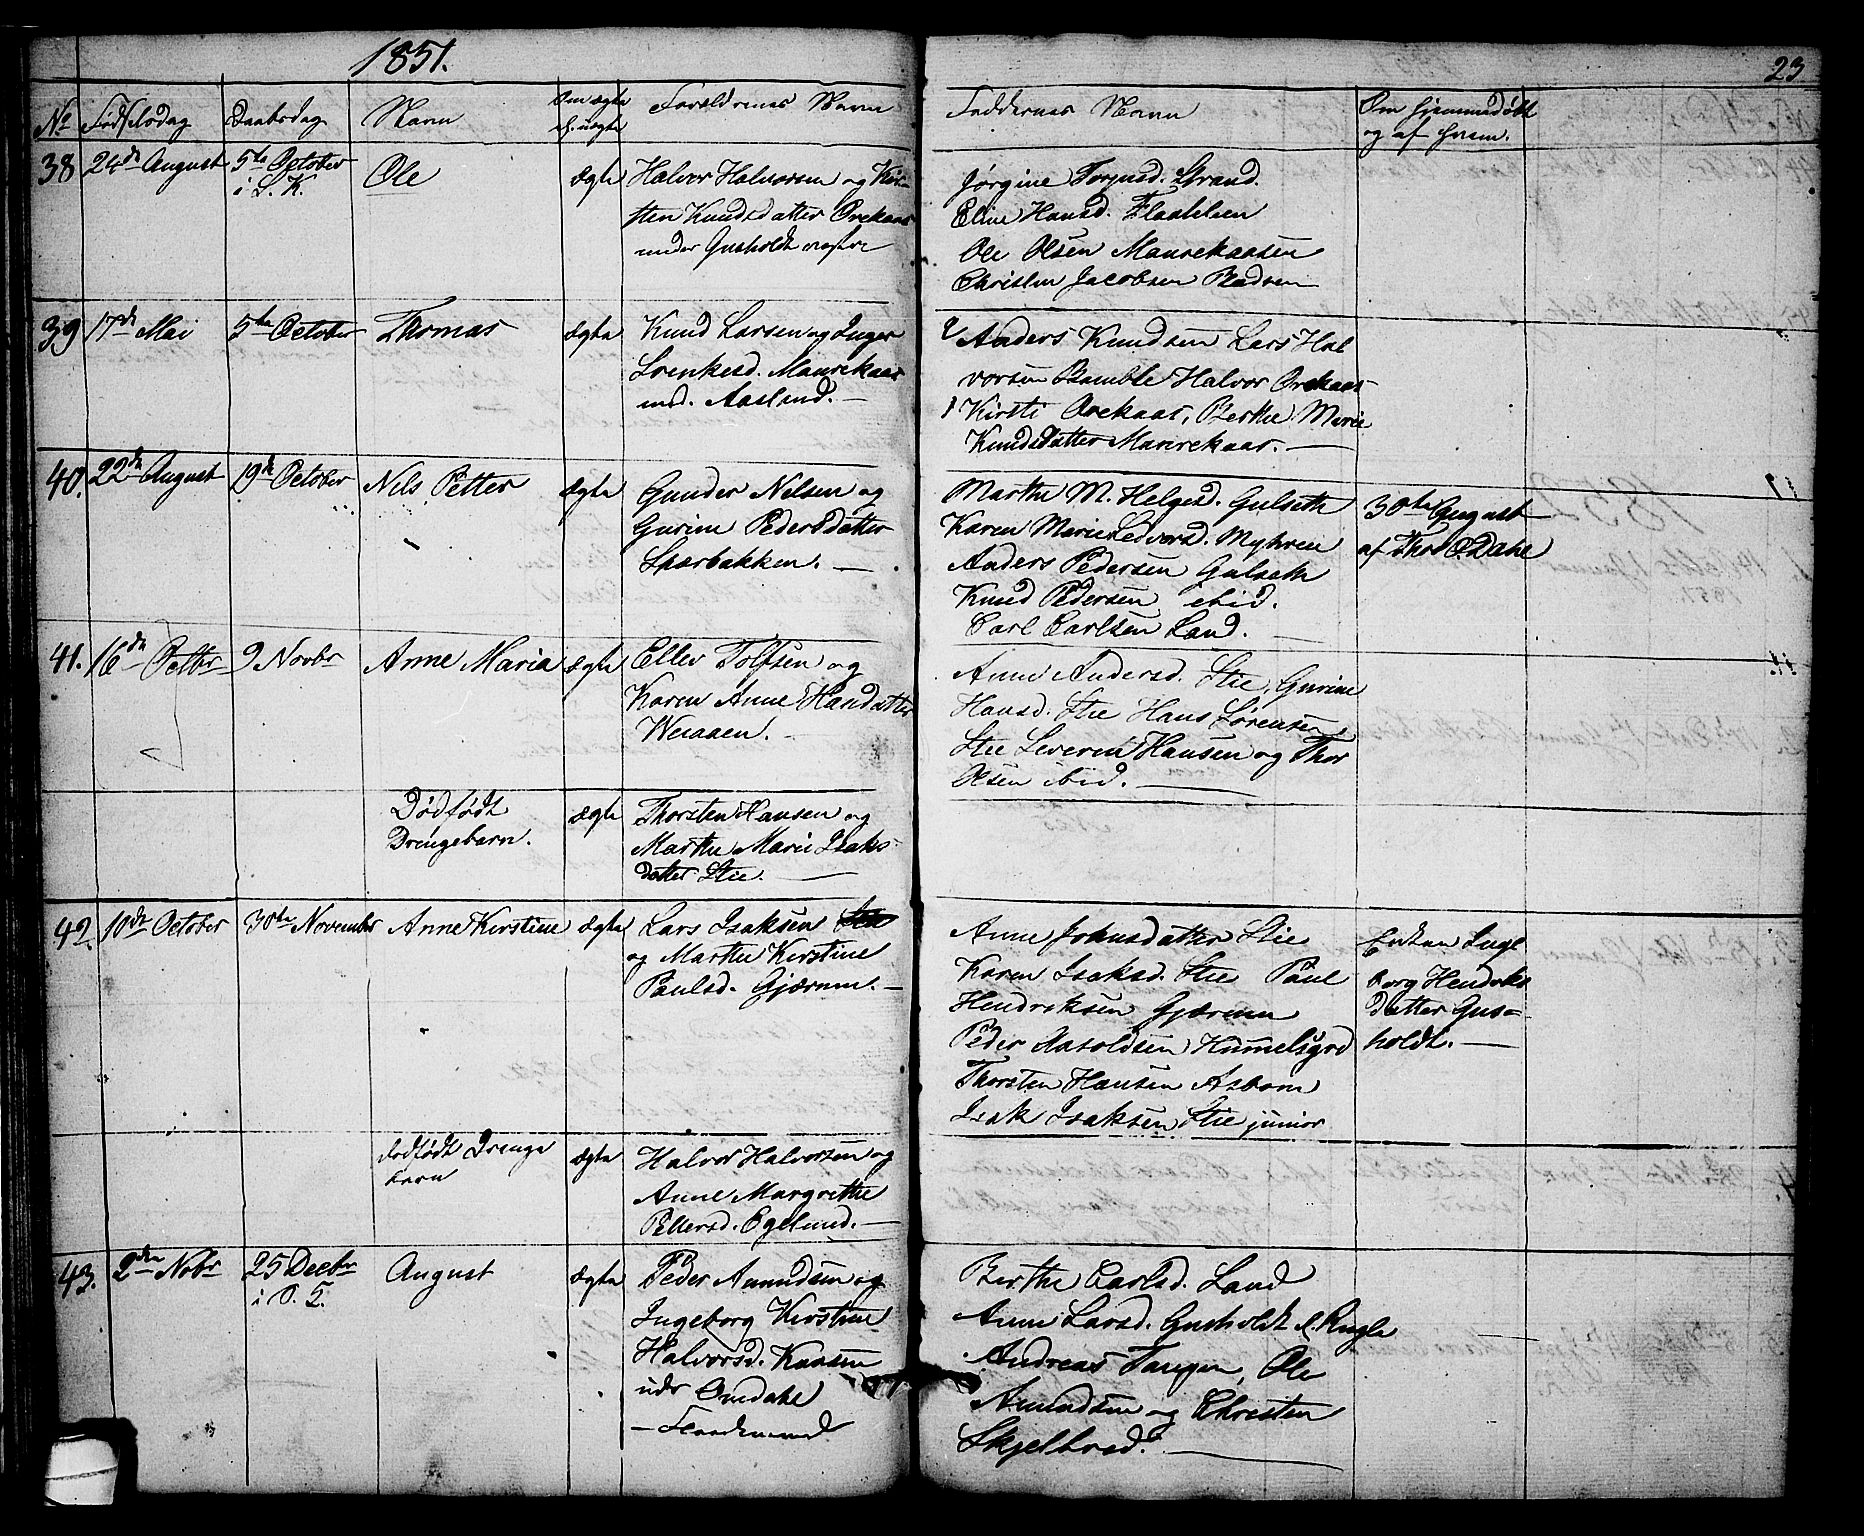 1851.
23
No Fødselsdag Daabsdag Navn Om ægte el. uægte Forældrenes Navn Faddernes Navn Om hjemmedøbt og af hvem.
38 24de August 5te October i S. K. Ole ægte
Halvor Halvorsen og Kir-
sten Knudsdatter Orekaas
under Gusholdt
Jørgine Torjusd. Strand.
Eline Hansd.
Ole Olsen Maurekaasen
Christen Jacobsen
39 17de Mai 5te October Thomas ægte
Knud Larsen og Inger
Maurekaas
Aaslund. —
2 Anders Knudsen Lars Hal
vorsen Bamble Halvor Orekaas
1 Kirsti Orekaas, Berthe Marie
Knudsdatter Maurekaas. —
40. 22de August 19de October Nils Petter ægte
Gunder Nilsen og
Gurine Pedersdatter
Spærbakken. —
Marthe M. Helgesd. Gulseth
Karen Marie Sedversd. Myhren
Anders Pedersen Gulseth
Knud Pedersen ibid.
Carl Carlsen Land. —
30te August
af Thor O Dahl
41. 16de Octbr 9 Novbr Anne Maria ægte
Ellev Tolfsen og
Karen Anne Hansdatter
Weiaaen. —
Anne Andersd. Stie, Gurine
Hansd. Stie Hans Sørensen
Stie Severin Hansen og Thor
Olsen ibid. —
Dødfødt
Drengebarn. ægte
Thorsten Hansen og
Marthe Marie Isaks-
datter Stie. —
42. 10de October 30te November Anne Kirstine ægte
Lars Isaksen
og Marthe Kirstine
Paulsd. Gjærum. —
Anne Johnsdatter Stie
Karen Isaksd. Stie Paul
Hendriksen Gjærum
Peder Aaroldsen Hummelsgrd
Thorsten Hansen Asbom
Isak Isaksen Stie junior
Enken Inge
borg Hendriks
datter Gus-
holdt. —
dødfødt Drenge
barn ægte
Halvor Halvorsen og
Anne Margrethe
Pettersd. Egelund. —
43. 2den Nobr 25 Decbr i S. K. August ægte
Peder Amundsen og
Ingeborg Kirstine
Halvorsd. Kaasen
undr Omdahl
Berthe Carlsd. Land
Anne Larsd. Gusholdt
Andreas Tangen, Ole
Amundsen og Christen
Skjelbred. —